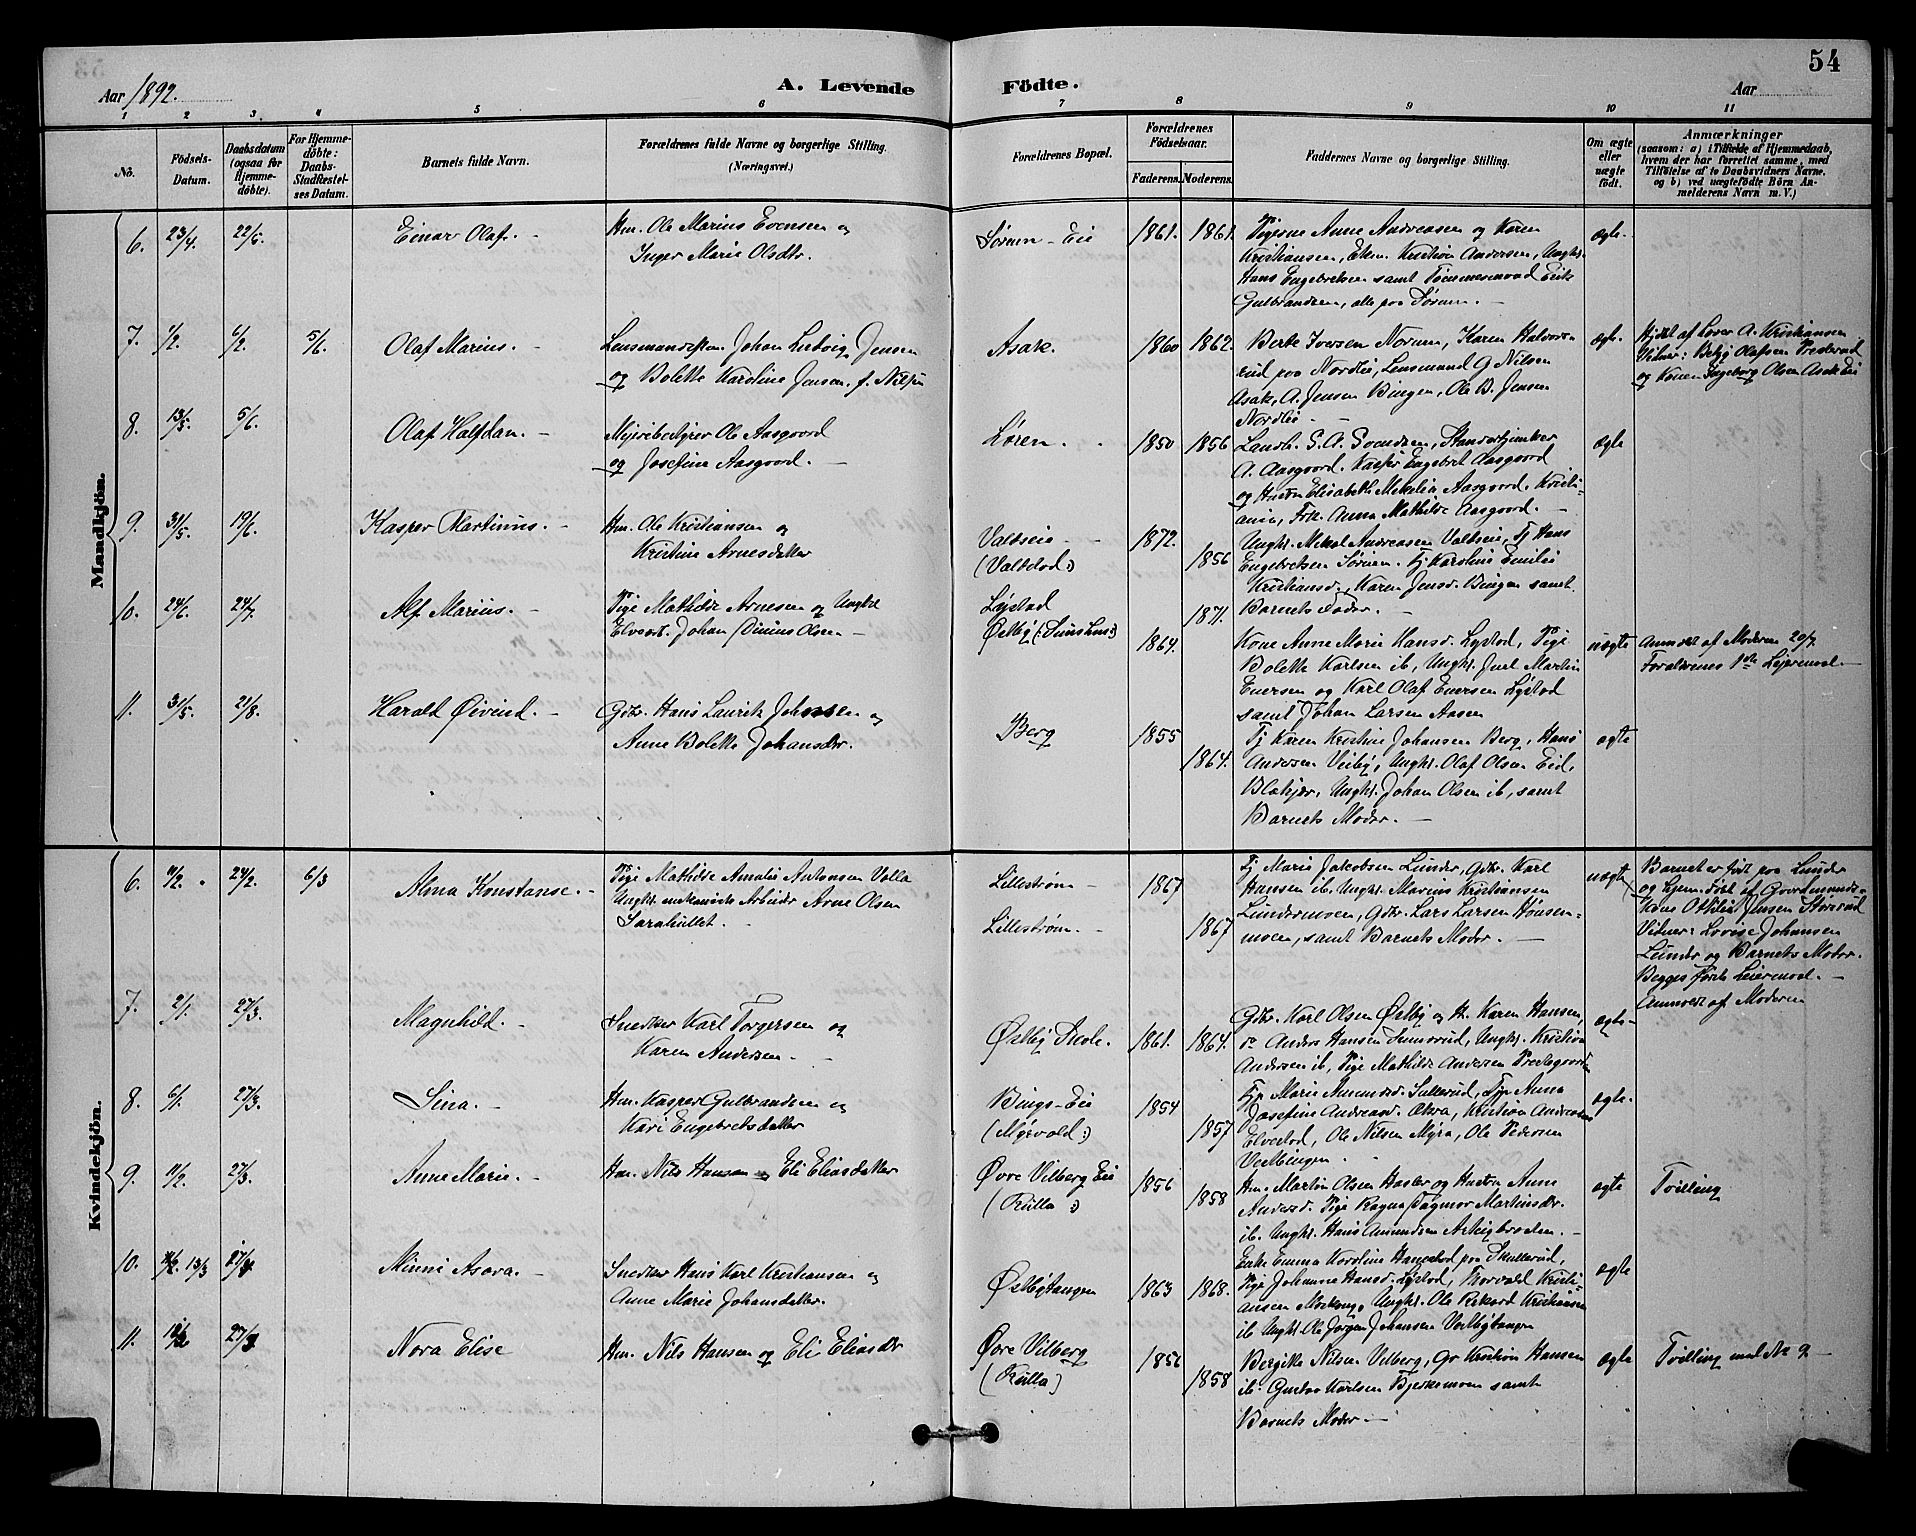 54
Aar 1892.
A. Levende Födte.
Aar
1 2 3. 4 5 6 7 8 9 10 11
No.
Födsels-Datum.
Daabsdatum (ogsaa for Hjemme-döbte).
For Hjemme-döbte: Daabs-Stadfæstel-ses Datum.
Barnets fulde Navn.
Forældrenes fulde Navne og borgerlige Stilling.
(Næringsvei.)
Forældrenes Bopæl.
Forældrenes Födselsaar.
Faderens. Moderens.
Faddernes Navne og borgerlige Stilling.
Om ægte eller uægte födt.
Anmærkninger
(saasom: a) i Tilfælde af Hjemmedaab,
hvem der har forrettet samme, med
Tilföielse af to Daabsvidners Navne,
og b) ved uægtefödte Börn An-
melderens Navn m. V.)
Mandkjön.
6. 23/4. 22/5. Einar Olaf. —
Hm. Ole Marius Evensen og
Inger Marie Olsdtr.
Sørum - Eie 1861. 1861.
Pigerne Anne Andreasen og Karen
Kristiansen, Ekm. Kristian Andersen, Ungk.
Hans Engebretsen samt Tømmermand Erik
Gulbrandsen, alle paa Sørum. —
ægte.
7. 1/2. 6/2. 5/6. Olaf Marius. —
Lensmandsfm. Johan Ludvig Jensen
og Bolette Karoline Jensen f. Nilsen
Asak. 1860 1862.
Berte Iversen Norum, Karen Halvors-
rud paa Nordlie, Lensmand G Nilsen
Asak, A. Jensen Bingen, Ole B. Jensen
Nordlie —
ægte.
Hjdbt af Lærer A. Kristiansen
Vidner: Betzy Olafsen Presterud
og Konen Ingeborg Olsen Asak Eie
8. 13/5. 5/6. Olaf Halfdan. —
Meieribestyrer Ole Aasgaard
og Josefine Aasgaard. —
Løren. 1850 1856
Landh. S. A. Svendsen, Standartjunker
A. Aasgaard. Kasfør Engebret Aasgaard
og Hustru Elisabeth Mekeline Aasgaard, Kristi-
ania, Frk. Anna Mathilde Aasgaard. —
Ægte
9. 31/5. 19/6. Kasper Martinus. —
Hm. Ole Kristiansen og
Kristine Arnesdatter
Valdseie —
(Valstad:) 1872. 1856
Ungk. Mikal Andreasen Valdseie, Tj Hans
Engebretsen Sørum. Pj Karoline Emilie
Kristiansd., Karen Jensd. Bingen samt
Barnets Fader. —
10. 24/6. 24/7. Alf Marius. —
Pige Mathilde Arnesen og Ungkl
Elvearb. Johan Dinius Olsen —
Lystad
Østby (Sunshus:) 1864. 1871.
Kone Anne Marie Hansd. Lystad, Pige
Bolette Karlsen ib, Ungk. Juel Martin
Enersen og Karl Olaf Enersen Lystad
samt Johan Larsen Aasen
uægte
Anmeldt af Moderen 20/7
Forældrenes 1ste Leiermaal. —
11. 31/5. 21/8. Harald Øivind. —
Gdbr. Hans Laurits Johnsen og
Anne Bolette Johansdtr.
Berg 1855 1864.
Tj Karen Kristine Johansen Berg, Hans
Andersen Veiby, Ungk. Olaf Olsen Eid,
Blakjer, Ungk. Johan Olsen ib, samt
Barnets Moder. —
ægte
Kvindekjön.
6. 11/2. 24/2. 6/3 Alma Konstanse. —
Pige Mathilde Amalie Antonsen Volla
Ungk. mekaniske Arbeider Arne Olsen
Sarahullet. —
Lillestrøm —
Lillestrøm. — 1867 1867
Tj Marie Jakobsen Lunder, Gdbr. Karl
Hansen ib. Ungk. Marius Kristiansen
Lundermoen, Gdbr. Lars Larsen Hønsen-
moen, samt Barnets Moder. —
uægte
Barnet er født paa Lunder
og hjem. døbt af Gaardmands-
kone Ottilie Jensen Størsrud
Vidner: Lovise Johansen
Lunder og Barnets Moder.
Begges første Leiermaal. —
Anmeldt af Moderen
7. 2/1. 27/3. Magnhild. —
Snedker Karl Torgersen og
Karen Andersen. —
Østby Skole. 1861. 1864.
Gdbr. Karl Olsen Østby og H. Karen Hansen,
do Anders Hansen Sunsrud, Ungk. Kristian
Andersen ib, Pige Mathilde Andersen Prestegaarden
ægte —
8. 6/1. 27/3. Sina. —
Hm. Kasper Gulbrandsen og
Kari Engebretsdatter
Bings-Eie
(Myrvold:) 1854 1857
Tjp Marie Amundsd. Sallerud, Tjp Anna
Josefine Andreasd. Økra, Kristian Andreasen
Elvestad, Ole Nilsen Myra, Ole Pedersen
Vestbingen.
ægte.
9. 11/2. 27/3. Anne Marie. —
Hm. Nils Hansen og Eli Eliasdatter
Øvre Vilberg Eie
(Rulla:) 1856 1858
Hm. Martin Olsen Hasler og Hustru Anne
Andersd. Pige Ragna Dagmar Martinsdtr.
ib. Ungk. Hans Amundsen Asakbraaten. —
ægte
Tvilling
10. 13/3 27/3 Minni Asora. —
Snedker Hans Karl Kristiansen og
Anne Marie Johansdatter.
Østbytangen 1863 1868.
Enke Emma Karoline Hangstad paa Skullerud,
Pige Johanne Hansd. Lystad, Thorvald Kristi-
ansen Morkong, Ungk. Ole Rikard Kristiansen
ib Ungk. Ole Jørgen Johansen Vestbytangen
ægte
11. 27/3 Nora Elise
Hm. Nils Hansen og Eli Eliasdtr
Øvre Vilberg
(Rulla) 1856 1858
Bergitte Nilsen Vilberg, Gr Kristian Hansen
ib. Gustav Karlsen Bjerkemoen samt
Barnets Moder —
ægte
Tvilling med No 9 —